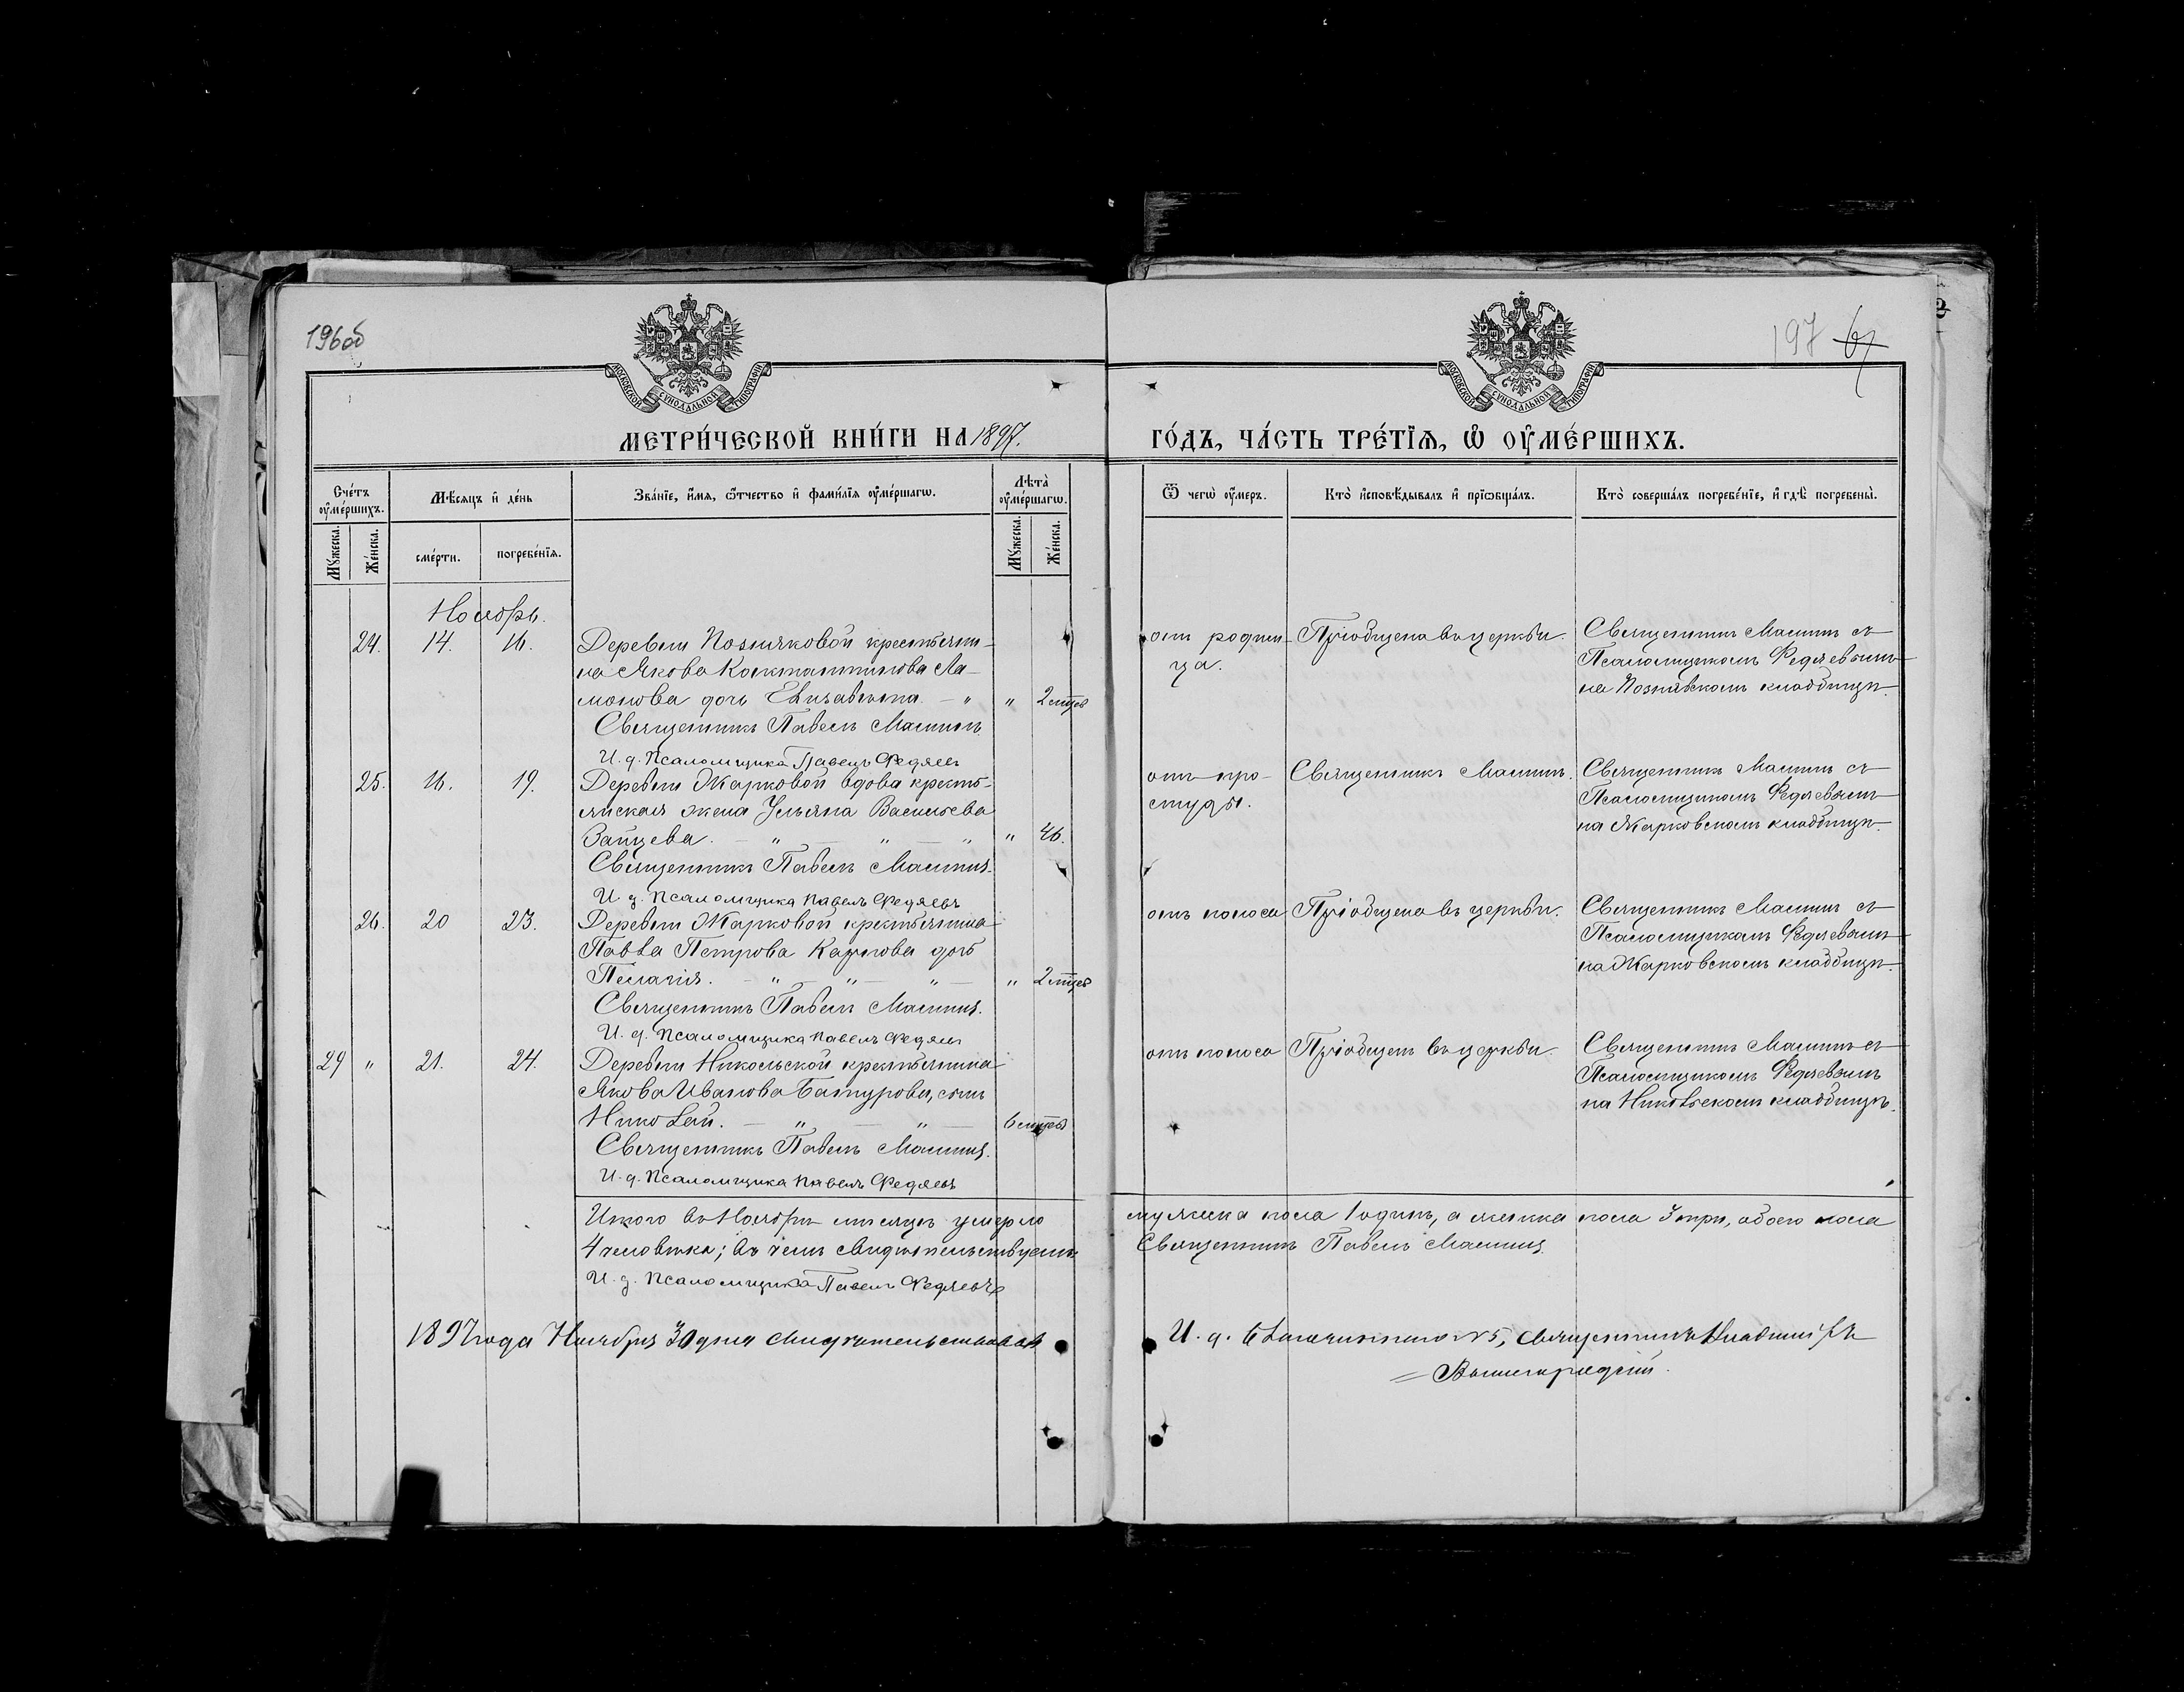 196об
197 67
МОСКОВСКОЙ СУНОДАЛЬНОЙ ТИПОГРАФІИ
МОСКОВСКОЙ СУНОДАЛЬНОЙ ТИПОГРАФІИ
МЕТРИ́ЧЕСКОЙ КНИ́ГИ НА 1897. ГО́ДЪ, ЧА́СТЬ ТРЕ́ТІѦ, Ѡ҆ ОУ҆МЕ́РШИХЪ.
Сче́тъ оу҆ме́ршихъ.
Мꙋ́жеска.
Же́нска.
Мѣ́сяцъ и҆ де́нь
сме́рти.
погребе́нїѧ.
Зва́нїе, и҆́мѧ, ѻ҆́тчество и҆ фами́лїѧ оу҆ме́ршагѡ.
Лѣта̀ оу҆ме́ршагѡ.
Мꙋ́жеска.
Же́нска.
Ѿ чегѡ̀ оу҆́меръ.
Кто̀ и҆сповѣ́дывалъ и҆ прїѡбща́лъ.
Кто̀ соверша́лъ погребе́нїе, и҆ гдѣ̀ погребены̀.
Ноябрь.
24. 14. 16. Деревни Позняковой крестьяни-
на Якова Константинова Ла-
монова дочь Елизавета — " " 2 мцев
Священникъ Павелъ Машинъ.
И. д. Псаломщика Павелъ Федяевъ
от родим-
ца.
Пріобщена въ церкви.
Священникъ Машинъ съ
Псаломщикомъ Федяевымъ
на Познявском кладбищѣ.
25. 16. 19. Деревни Жарковой вдова кресть-
янская жена Ульяна Васильева
Зайцева. — " — " — " " 46.
Священникъ Павелъ Машинъ.
И д. Псаломщика Павелъ Федяевъ
отъ про-
студы.
Священникъ Машинъ.
Священникъ Машинъ съ
Псаломщикомъ Федяевымъ
на Жарковскомъ кладбищѣ.
26. 20 23. Деревни Жарковой крестьянина
Павла Петрова Карпова дочь
Пелагія. — " — " — " — " 2 мцев
Священникъ Павелъ Машинъ.
И. д. Псаломщика Павелъ Федяевъ
отъ поноса
Пріобщена въ церкви.
Священникъ Машинъ съ
Псаломщикомъ Федяевымъ
на Жарковскомъ кладбищѣ.
29 " 21. 24. Деревни Никольской крестьянина
Якова Иванова Батурова, сынъ
Николай. — " — " — 6 мцевъ
Священникъ Павелъ Машинъ.
И. д. Псаломщика Павелъ Федяевъ
отъ поноса
Пріобщенъ въ церкви.
Священникъ Машинъ съ
Псаломщикомъ Федяевымъ
на Никольскомъ кладбищѣ.
Итого въ Ноябрѣ мѣсяцѣ умерло мужеска пола 1 одинъ, а женска пола 3 три, обоего пола
4 человѣка; въ чемъ свидѣтельствуемъ: Священникъ Павелъ Машинъ.
И. д. Псаломщика Павелъ Федяевъ
1897 года Ноября 30 дня свидѣтельствовалъ И. д. Благочиннаго №5, священникъ Владиміръ
Вышегродскій.